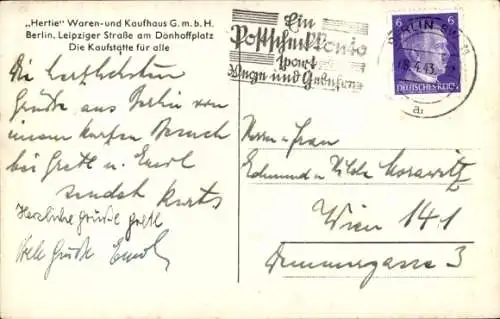 „Hertie" Waren-und Kaufhaus G.m.b.H.
Berlin, Leipziger Straße am Dönhoffplatz
Die Kaufstätte für alle
Ein
Postscheckkonto
spart
Wege und Gebühren
BERLIN
43
a
6 6
DEUTSCHES REICH
Die herzlichsten
Grüße aus Berlin von
unserem kurzen Besuch
bei Gretl u.
sendet
Herzliche Grüße Gretl
Viele Grüße
Herrn u. Frau
Edmund u. Hilde Morawitz
Wien 141
3